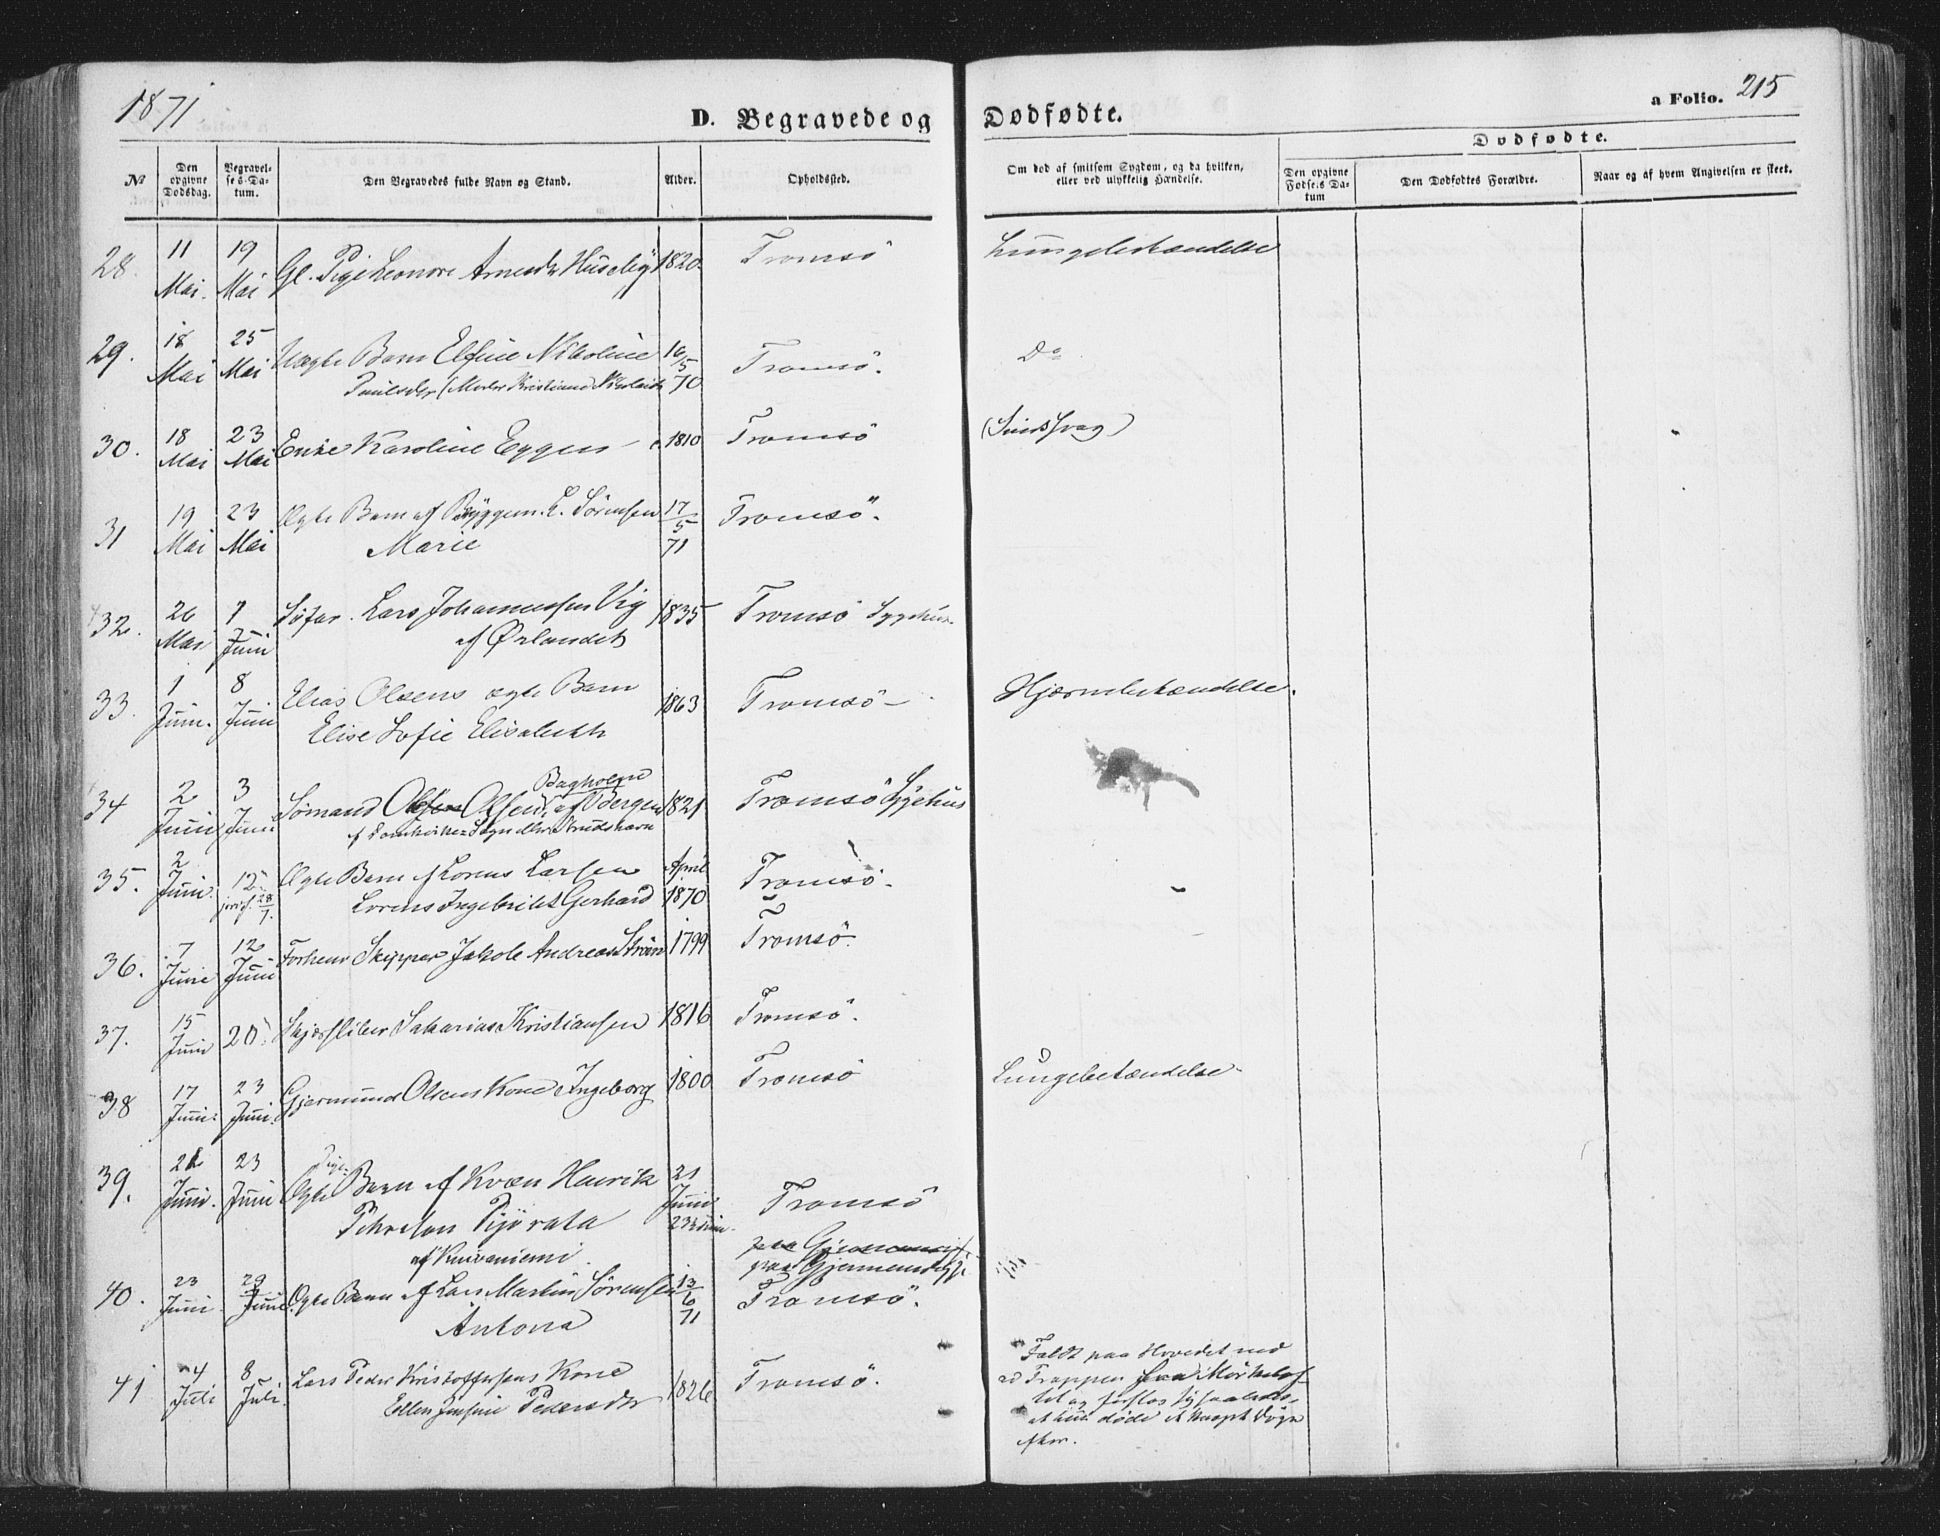 1871
D. Begravede og Dødfødte.
a Folio. 215
Dødfødte.
No
Den opgivne Dødsdag.
Begravelses-Datum.
Den Begravedes fulde Navn og Stand.
Alder.
Opholdssted.
Om død af smitsom Sygdom, og da hvilken, eller ved ulykkelig Hændelse.
Den opgivne Fødsels Datum
Den Dødfødtes Forældre.
Naar og af hvem Angivelsen er skeet.
28. 11 Mai. 19 Mai Gl. Pige Leonore Arnesdr Huseby 1820. Tromsö Lungebetændelse
29. 18 Mai 25 Mai Uægte Barn Elfine Nikoline 16/5 70 Tromsö. Do
Paulsdr (Moder Kristiane
30. 18 Mai 23 Mai Enke Karoline Eggen 1810 Tromsö (Sindssvag)
31 19 Mai 23 Mai Ægte Barn af Byggm. L. Sörensen 17/5 71 Tromsö.
Marie
32. 26 Mai 7 Juni Søfar. Lars Johannessen Vig 1835 Tromsö Sygehus
af Ørlandet
33. 1 Juni. 8 Juni Elias Olsens ægte Barn 1863 Tromsö Hjernebetændelse.
Elise Sofie Elisabeth
34 2 Juni 3 Juni Sømand Olsen af Bergen 1821 Tromsö Sygehus
Bagholm
35. 2 Juni. 12 Ægte Barn af Lorens Larsen April 1870 Tromsö.
28/7.
Lorens Ingebrikt Gerhard
36. 7 Juni 12 Juni Forhenv Skipper Jakob Andreas Ström 1799 Tromsö.
37. 15 Juni 20 Sakarias Kristiansen 1816 Tromsö.
38 17 Juni. 23 Juni. Gjermund Olsens Kone Ingeborg 1800 Tromsö Lungebetændelse
39. 21 Juni. 23 Juni Ægte Pige Barn af Kvæn Henrik 21 Juni Tromsö
af Kuivaniemi
40. 23 Juni 29 Juni Ægte Barn af Lars Martin Sörensen 13/6 71 Tromsö.
Antona
41 4 Juli 8 Juli. Lars Peder Kristoffersens Kone 1826 Tromsö. Faldt paa Hovedet ned
Ellen Pedersdr
ad Trappen
at hun døde et Døgn
efter.